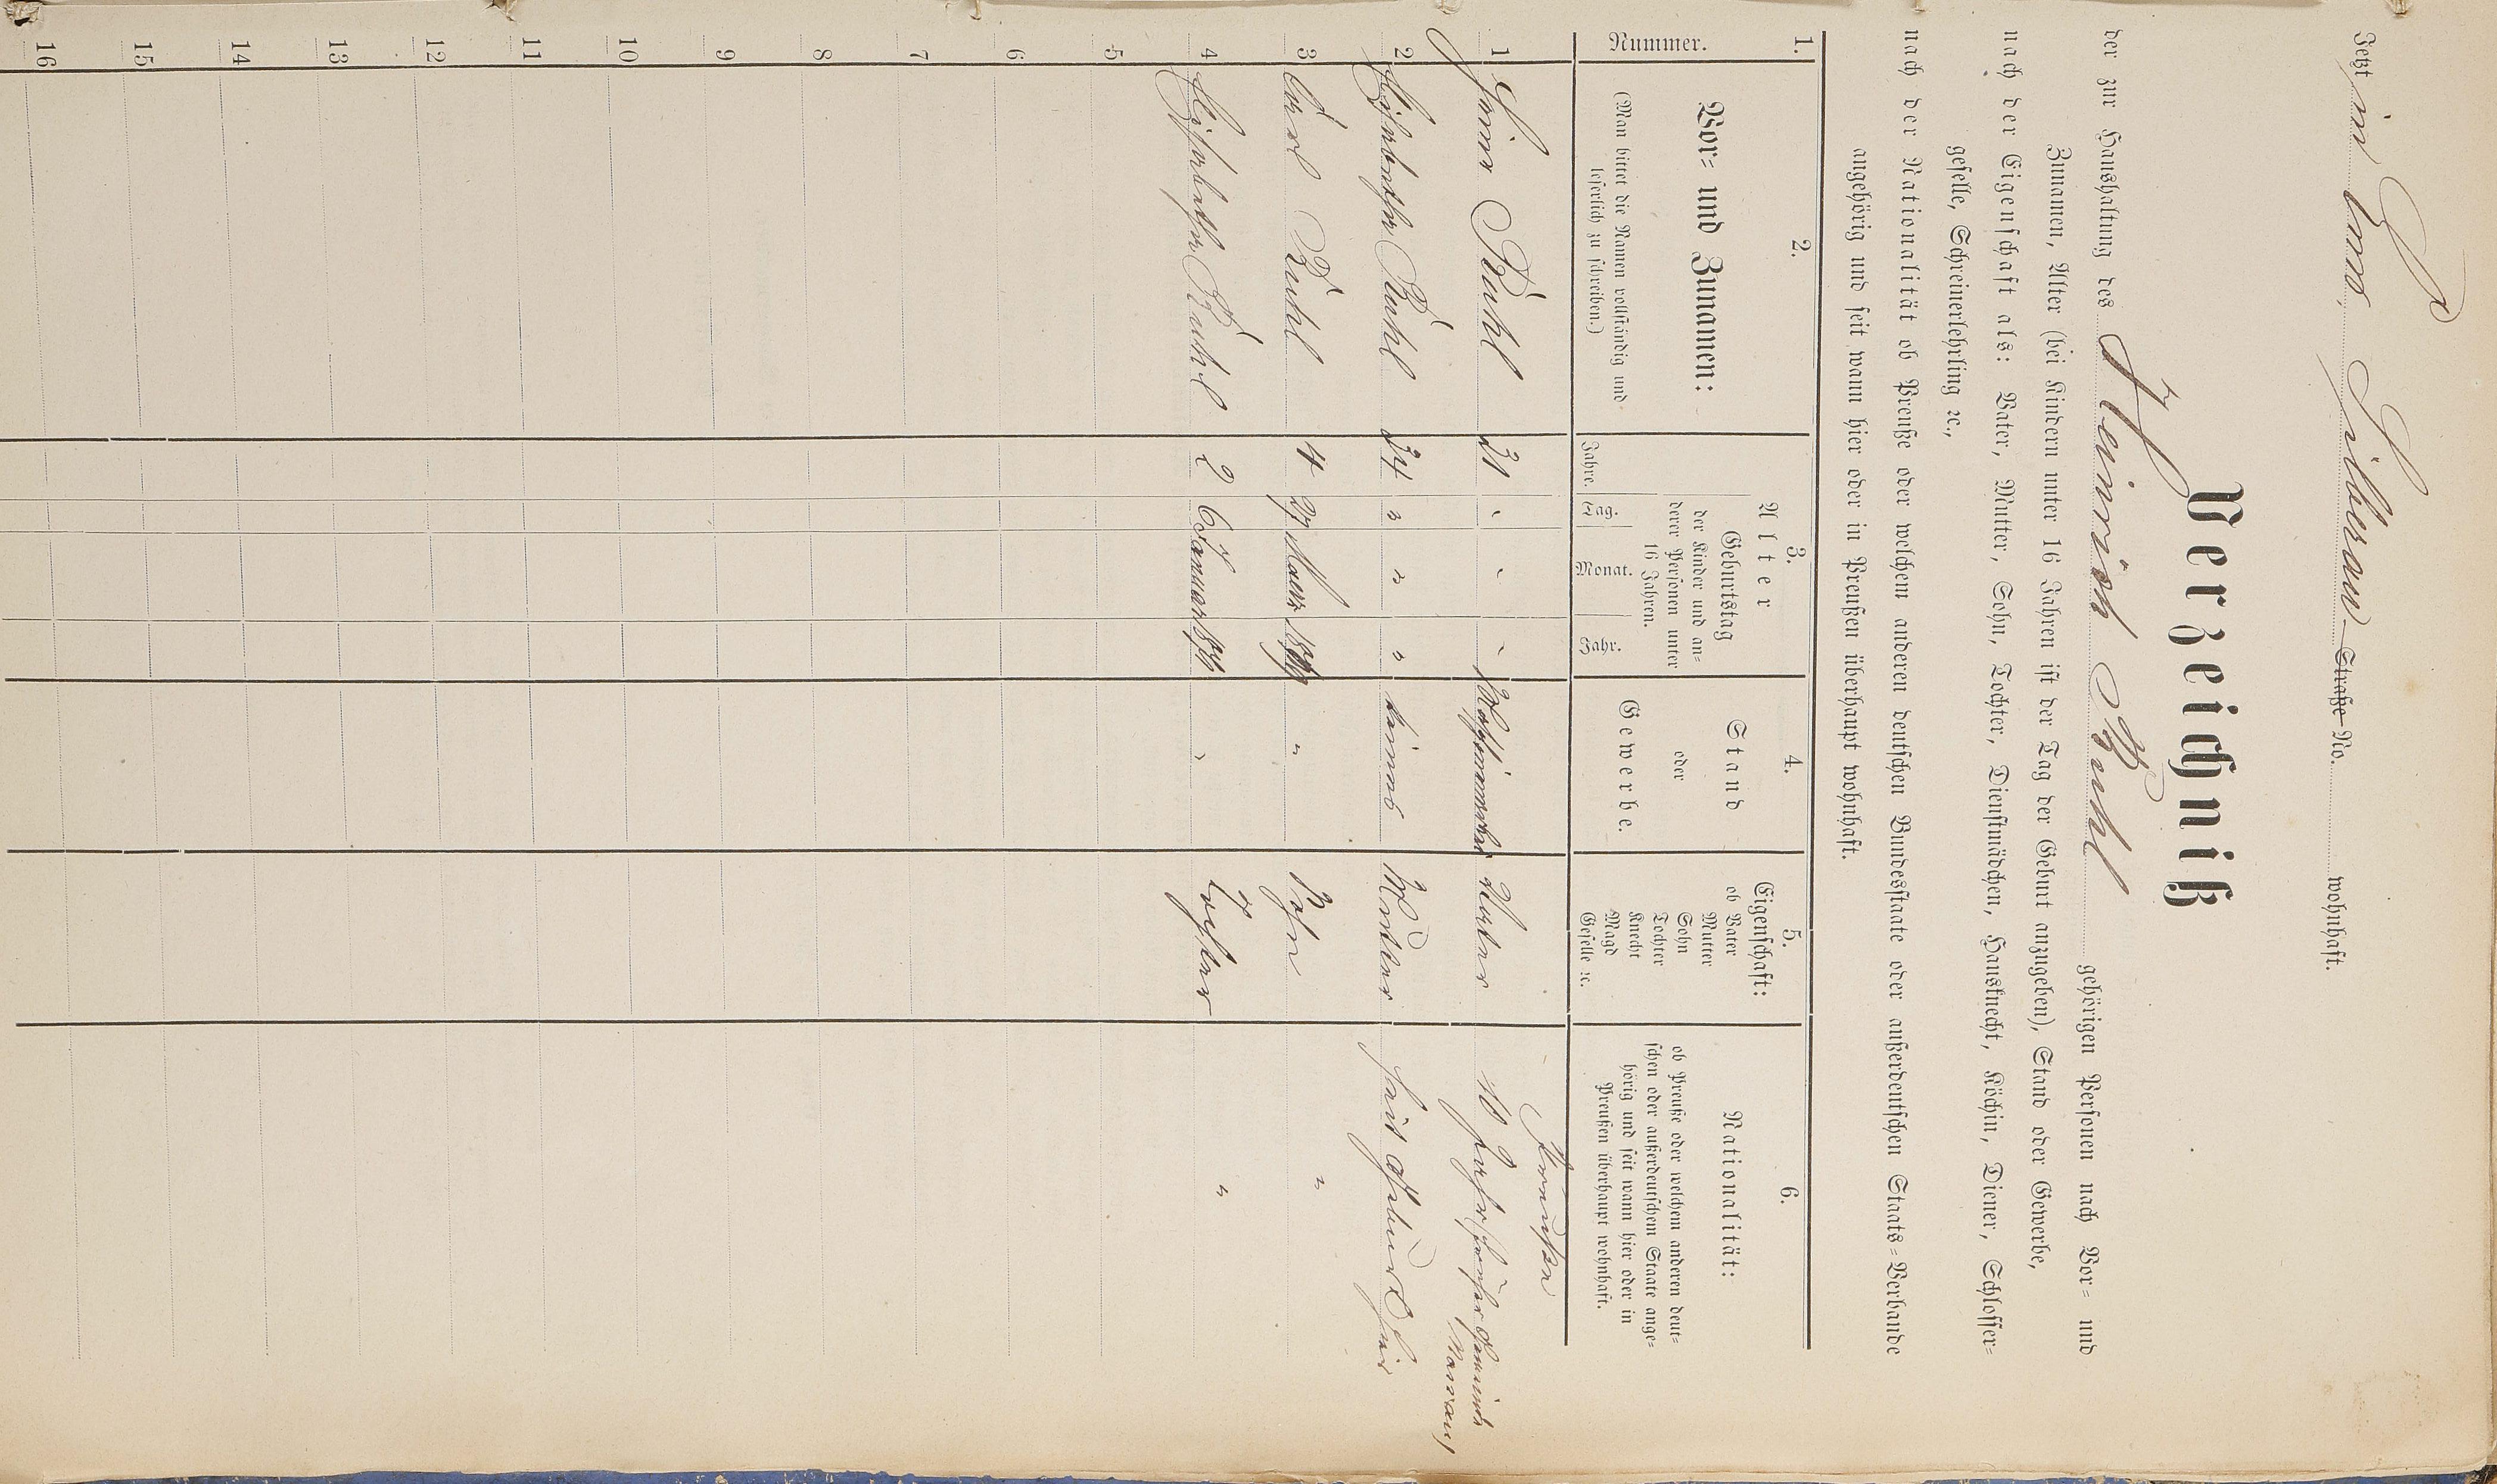 Jetzt in Ems, Silberau Straße No. wohnhaft.
Verzeichniß
der zur Haushaltung des Heinrich Ruhl gehörigen Personen nach Vor= und
Zunamen, Alter (bei Kindern unter 16 Jahren ist der Tag der Geburt anzugeben), Stand oder Gewerbe,
nach der Eigenschaft als: Vater, Mutter, Sohn, Tochter, Dienstmädchen, Hausknecht, Köchin, Diener, Schlosser=
geselle, Schreinerlehrling ꝛc.,
nach der Nationalität ob Preuße oder welchem anderen deutschen Bundesstaate oder außerdeutschen Staats=Verbande
angehörig und seit wann hier oder in Preußen überhaupt wohnhaft.
1. 2. 3. 4. 5. 6.
Nummer.
Vor= und Zunamen:
(Man bittet die Namen vollständig und
leserlich zu schreiben.)
Alter
Geburtstag
der Kinder und an=
derer Personen unter
16 Jahren.
Jahre. Tag. Monat. Jahr.
Stand
oder
Gewerbe.
Eigenschaft:
ob Vater
Mutter
Sohn
Tochter
Knecht
Magd
Geselle ꝛc.
Nationalität:
ob Preuße oder welchem anderen deut=
schen oder außerdeutschem Staate ange=
hörig und seit wann hier oder in
Preußen überhaupt wohnhaft.
Preuße
1 Ruhl 31 " " " Vater 10 Jahr
Nassau)
2 Elisabetha Ruhl 34 " " " keines Mutter seit Geburt hier
3 Carl Ruhl 4 27 " Sohn "
4 Elisabetha Ruhl 2 6 Januar 1874 " Tochter "
5
6
7
8
9
10
11
12
13
14
15
16